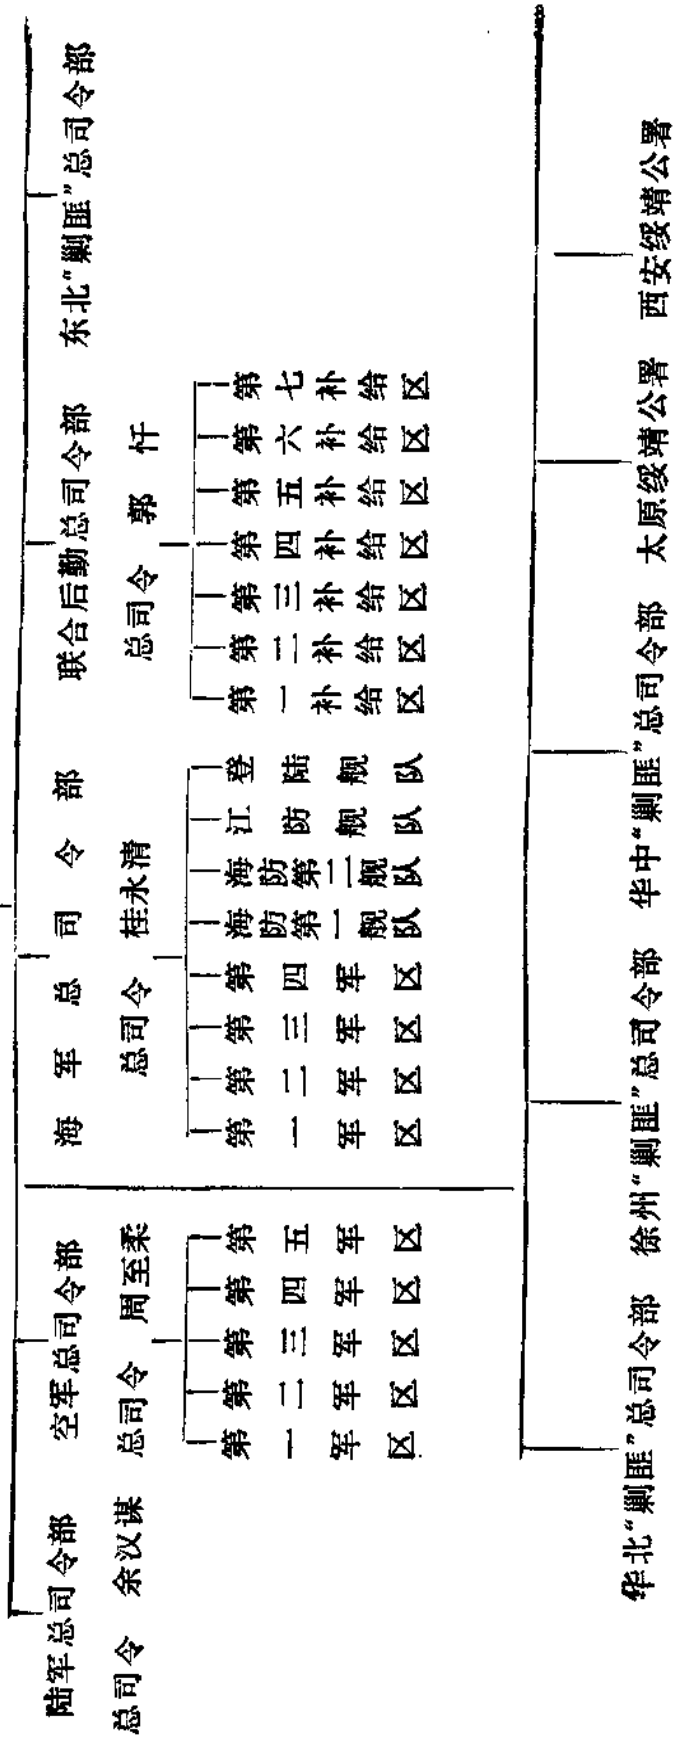 陆军总司令部
总司令 余汉谋
空军总司令部
总司令 周至柔
第一军区
第二军区
第三军区
第四军区
第五军区
海军总司令部
总司令 桂永清
第一军区
第二军区
第三军区
第四军区
海防第一舰队
海防第二舰队
江防舰队
登陆舰队
联合后勤总司令部
总司令 郭忏
第一补给区
第二补给区
第三补给区
第四补给区
第五补给区
第六补给区
第七补给区
东北“剿匪”总司令部
华北“剿匪”总司令部
徐州“剿匪”总司令部
华中“剿匪”总司令部
太原绥靖公署
西安绥靖公署